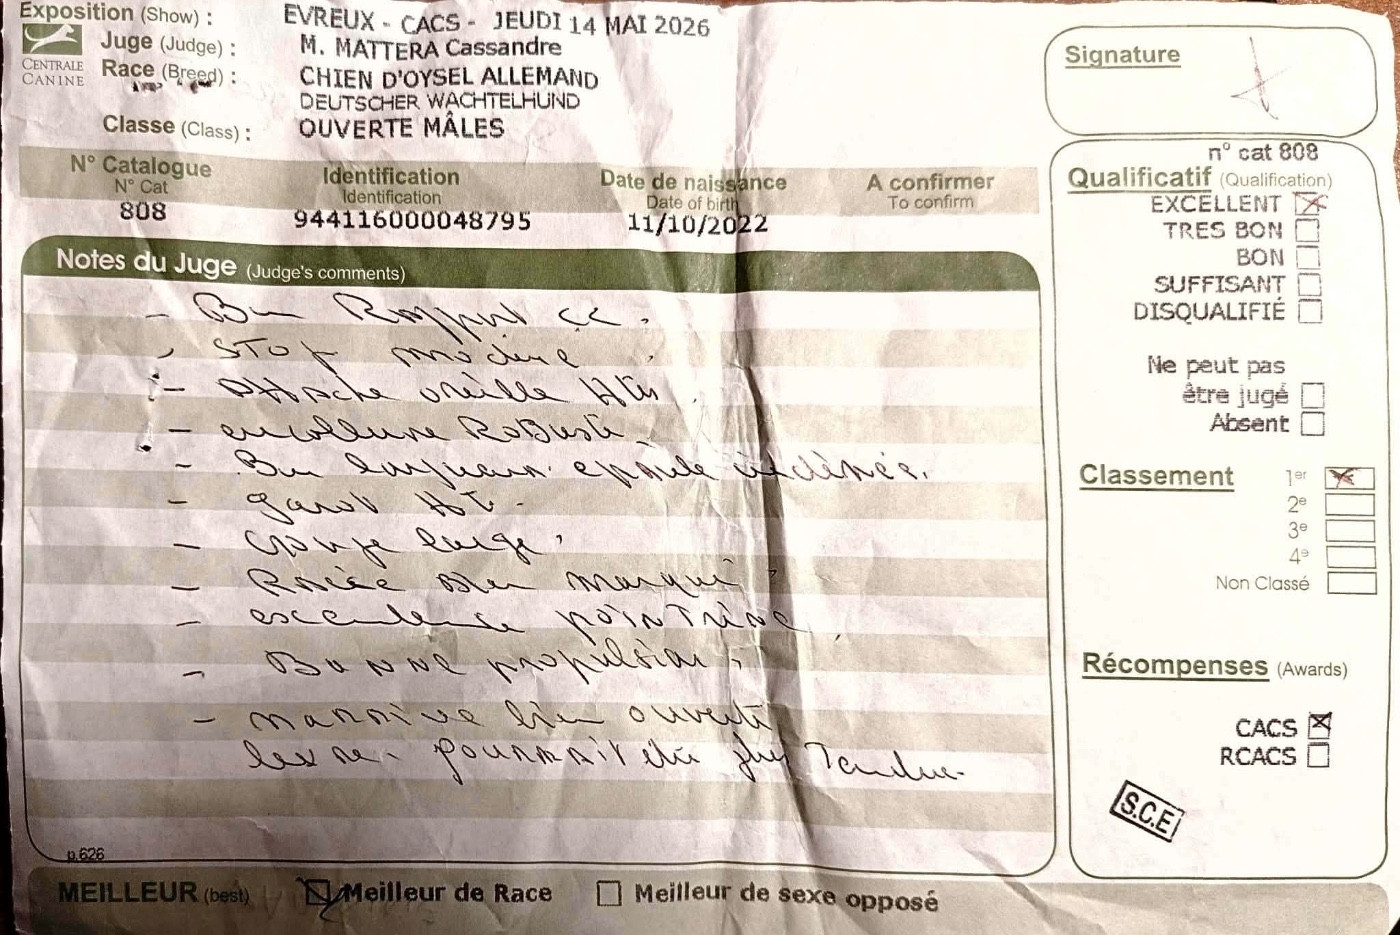 Exposition (Show) : EVREUX - CACS - JEUDI 14 MAI 2026
Juge (Judge) : M. MATTERA Cassandre
CENTRALE CANINE
Race (Breed) : CHIEN D'OYSEL ALLEMAND
DEUTSCHER WACHTELHUND
Classe (Class) : OUVERTE MÂLES
N° Catalogue Identification Date de naissance A confirmer
N° Cat Identification Date of birth To confirm
808 944116000048795 11/10/2022
Notes du Juge (Judge's comments)
- Bon Rapport
- STOP modéré
- Attache oreille Hte
- encolure Robuste
- Bon épaule inclinée.
- garot Ht.
- large
- bien marqué
- excellente poiNTrine
- Bonne propulsion
- narrine bien ouverte
pourrait être plus Tendue
p.626
MEILLEUR (best) Meilleur de Race Meilleur de sexe opposé
Signature
n° cat 808
Qualificatif (Qualification)
EXCELLENT
TRES BON
BON
SUFFISANT
DISQUALIFIÉ
Ne peut pas
être jugé
Absent
Classement 1er
2e
3e
4e
Non Classé
Récompenses (Awards)
CACS
RCACS
S.C.E